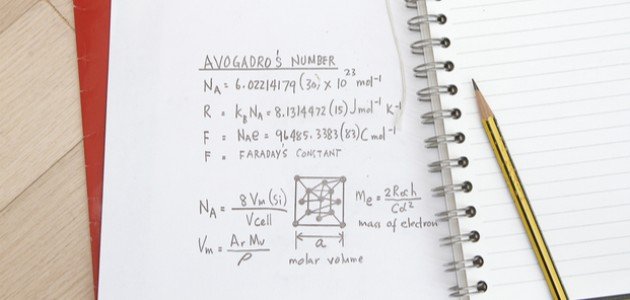 AVOGADRO'S NUMBER
N_A = 6.02214179(30) × 10^23 mol^-1
R = k_B N_A = 8.1314472(15) J mol^-1 K^-1
F = N_A e = 96485.3383(83) C mol^-1
F = FARADAY'S CONSTANT
N_A = 8 V_m (Si) / V cell
M_e = 2 R∞ h / C α^2
mass of electron
V_m = A_r M_u / ρ
a
molar volume